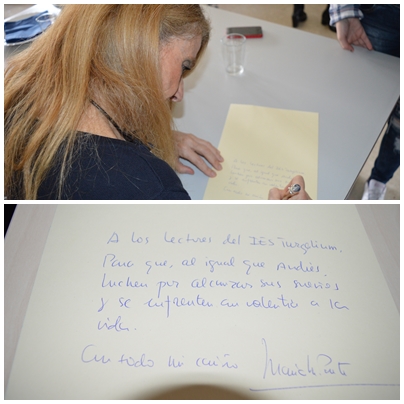 A los lectores del IES Turgalium.
Para que, al igual que Andrés,
luchen por alcanzar sus sueños
y se enfrenten con valentía a la
vida.
Con todo mi cariño